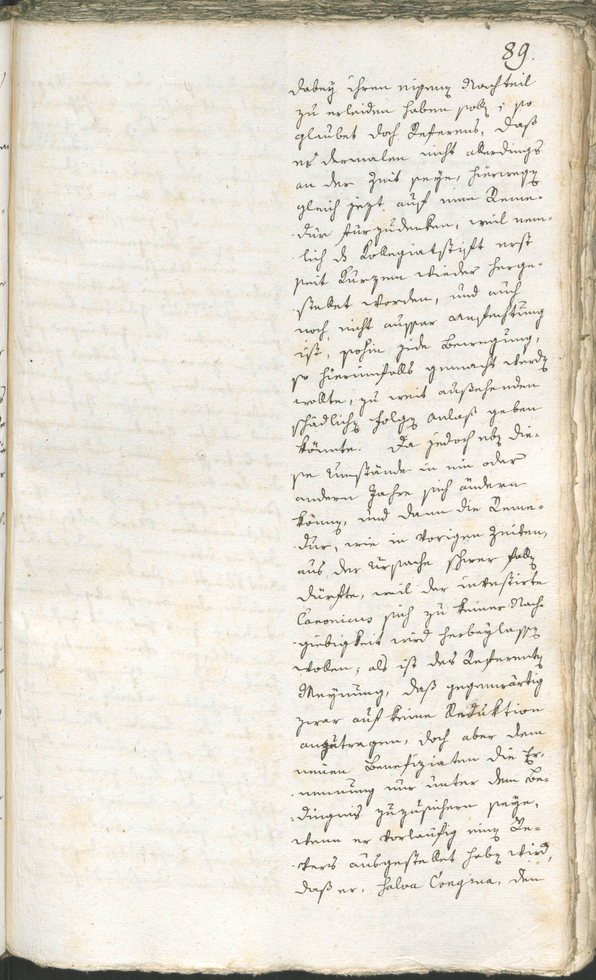 89.
dabey ihren eigenen Nachteil
zu erleiden haben solle; so
glaubet doch Referens, daß
es dermalen nicht allerdings
an der Zeit seye, hierwegen
gleich jezt auf eine Reme-
dur fürzudenken, weil nem-
lich das Kollegiatstift erst
seit Kurzem wieder herge-
stellet worden, und auch
noch nicht ausser Anfechtung
ist, sohin jede Bewegung,
so hierinnfalls gemacht werden
wollte, zu weit aussehenden
schädlichen Folgen Anlaß geben
könnte. Da jedoch eben die-
se Umstände in ein oder
andern Jahre sich ändern
können, und dann die Reme-
dur, wie in vorigen Zeiten,
aus der Ursache schwer fallen
dürfte, weil der investirte
Canonicus sich zu keiner Nach-
giebigkeit wird herbeylassen
wollen; als ist des Referenten
Meynung, daß gegenwärtig
zwar auf keine Reduktion
anzutragen, doch aber dem
neuen Benefiziaten die Er-
nennung nur unter dem Be-
dingnis zuzusichern seye,
wenn er vorläufig einen Re-
vers ausgestellet haben wird,
daß er, salva Congrua, den